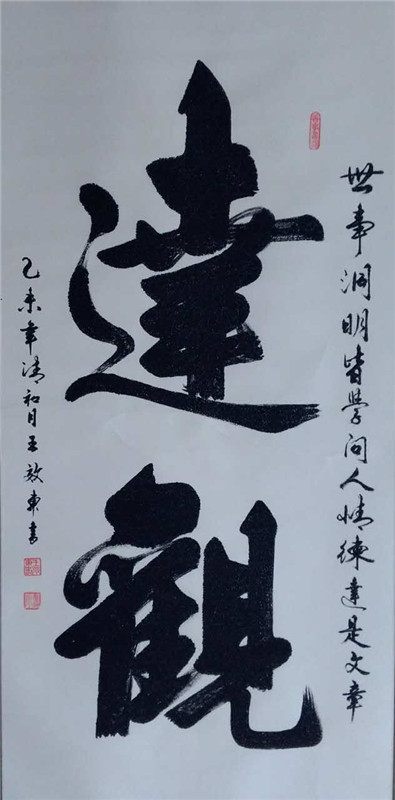 世事洞明皆學问人情练達是文章
達觀
乙未年清和月王效東书